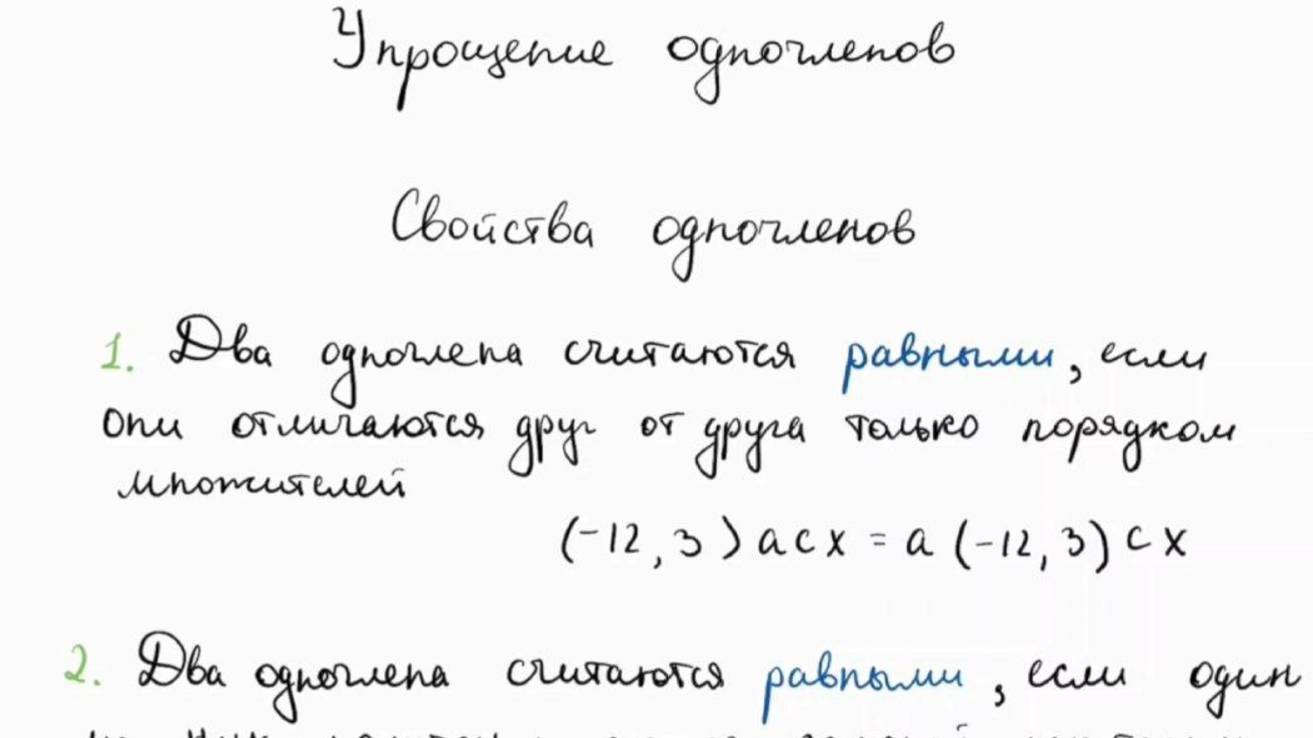 Упрощение одночленов
Свойства одночленов
1. Два одночлена считаются равными, если
они отличаются друг от друга только порядком
множителей
(-12,3)acx = a(-12,3)cx
2. Два одночлена считаются равными, если один